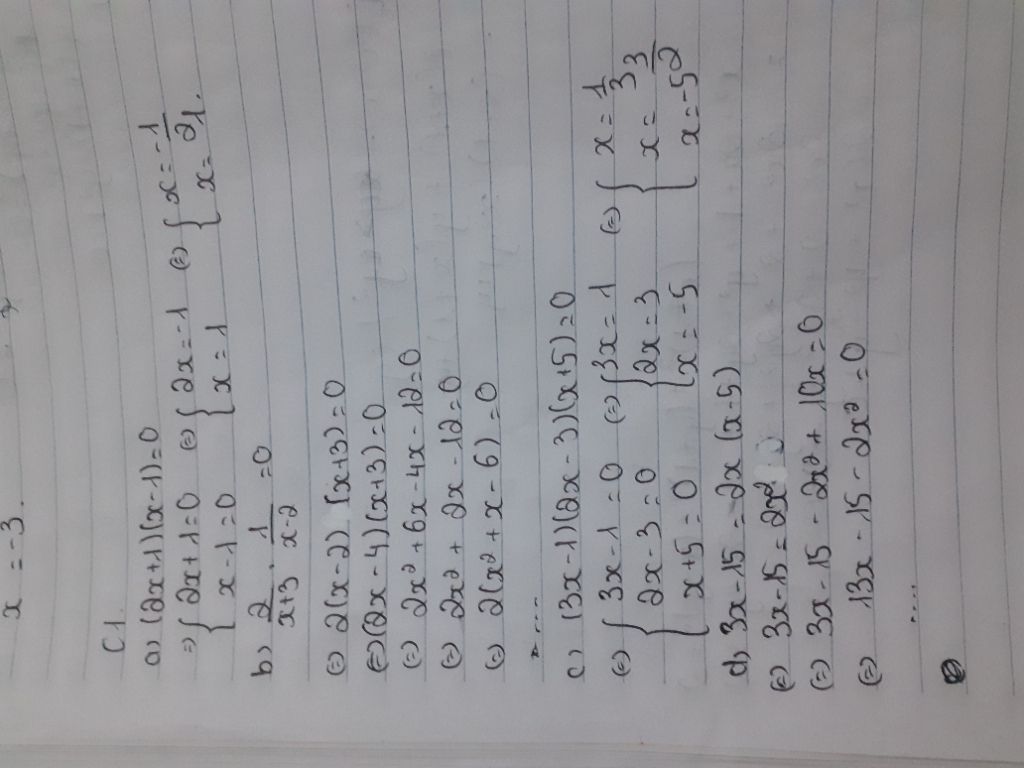 x = -3.
C1.
a) (2x+1)(x-1)=0
⇒ { 2x+1=0 ⇔ { 2x=-1 ⇔ { x=-1/2
{ x-1=0 { x=1 { x=1.
b) 2/x+3 . 1/x-2 =0
⇔ 2(x-2)(x+3)=0
⇔ (2x-4)(x+3)=0
⇔ 2x²+6x-4x-12=0
⇔ 2x²+2x-12=0
⇔ 2(x²+x-6)=0
....
c) (3x-1)(2x-3)(x+5)=0
⇔ { 3x-1=0 ⇔ { 3x=1 ⇔ { x=1/3
{ 2x-3=0 { 2x=3 { x=3/2
{ x+5=0 { x=-5 { x=-5
d) 3x-15=2x(x-5)
⇔ 3x-15=2x²
⇔ 3x-15-2x²+10x=0
⇔ 13x-15-2x²=0
....